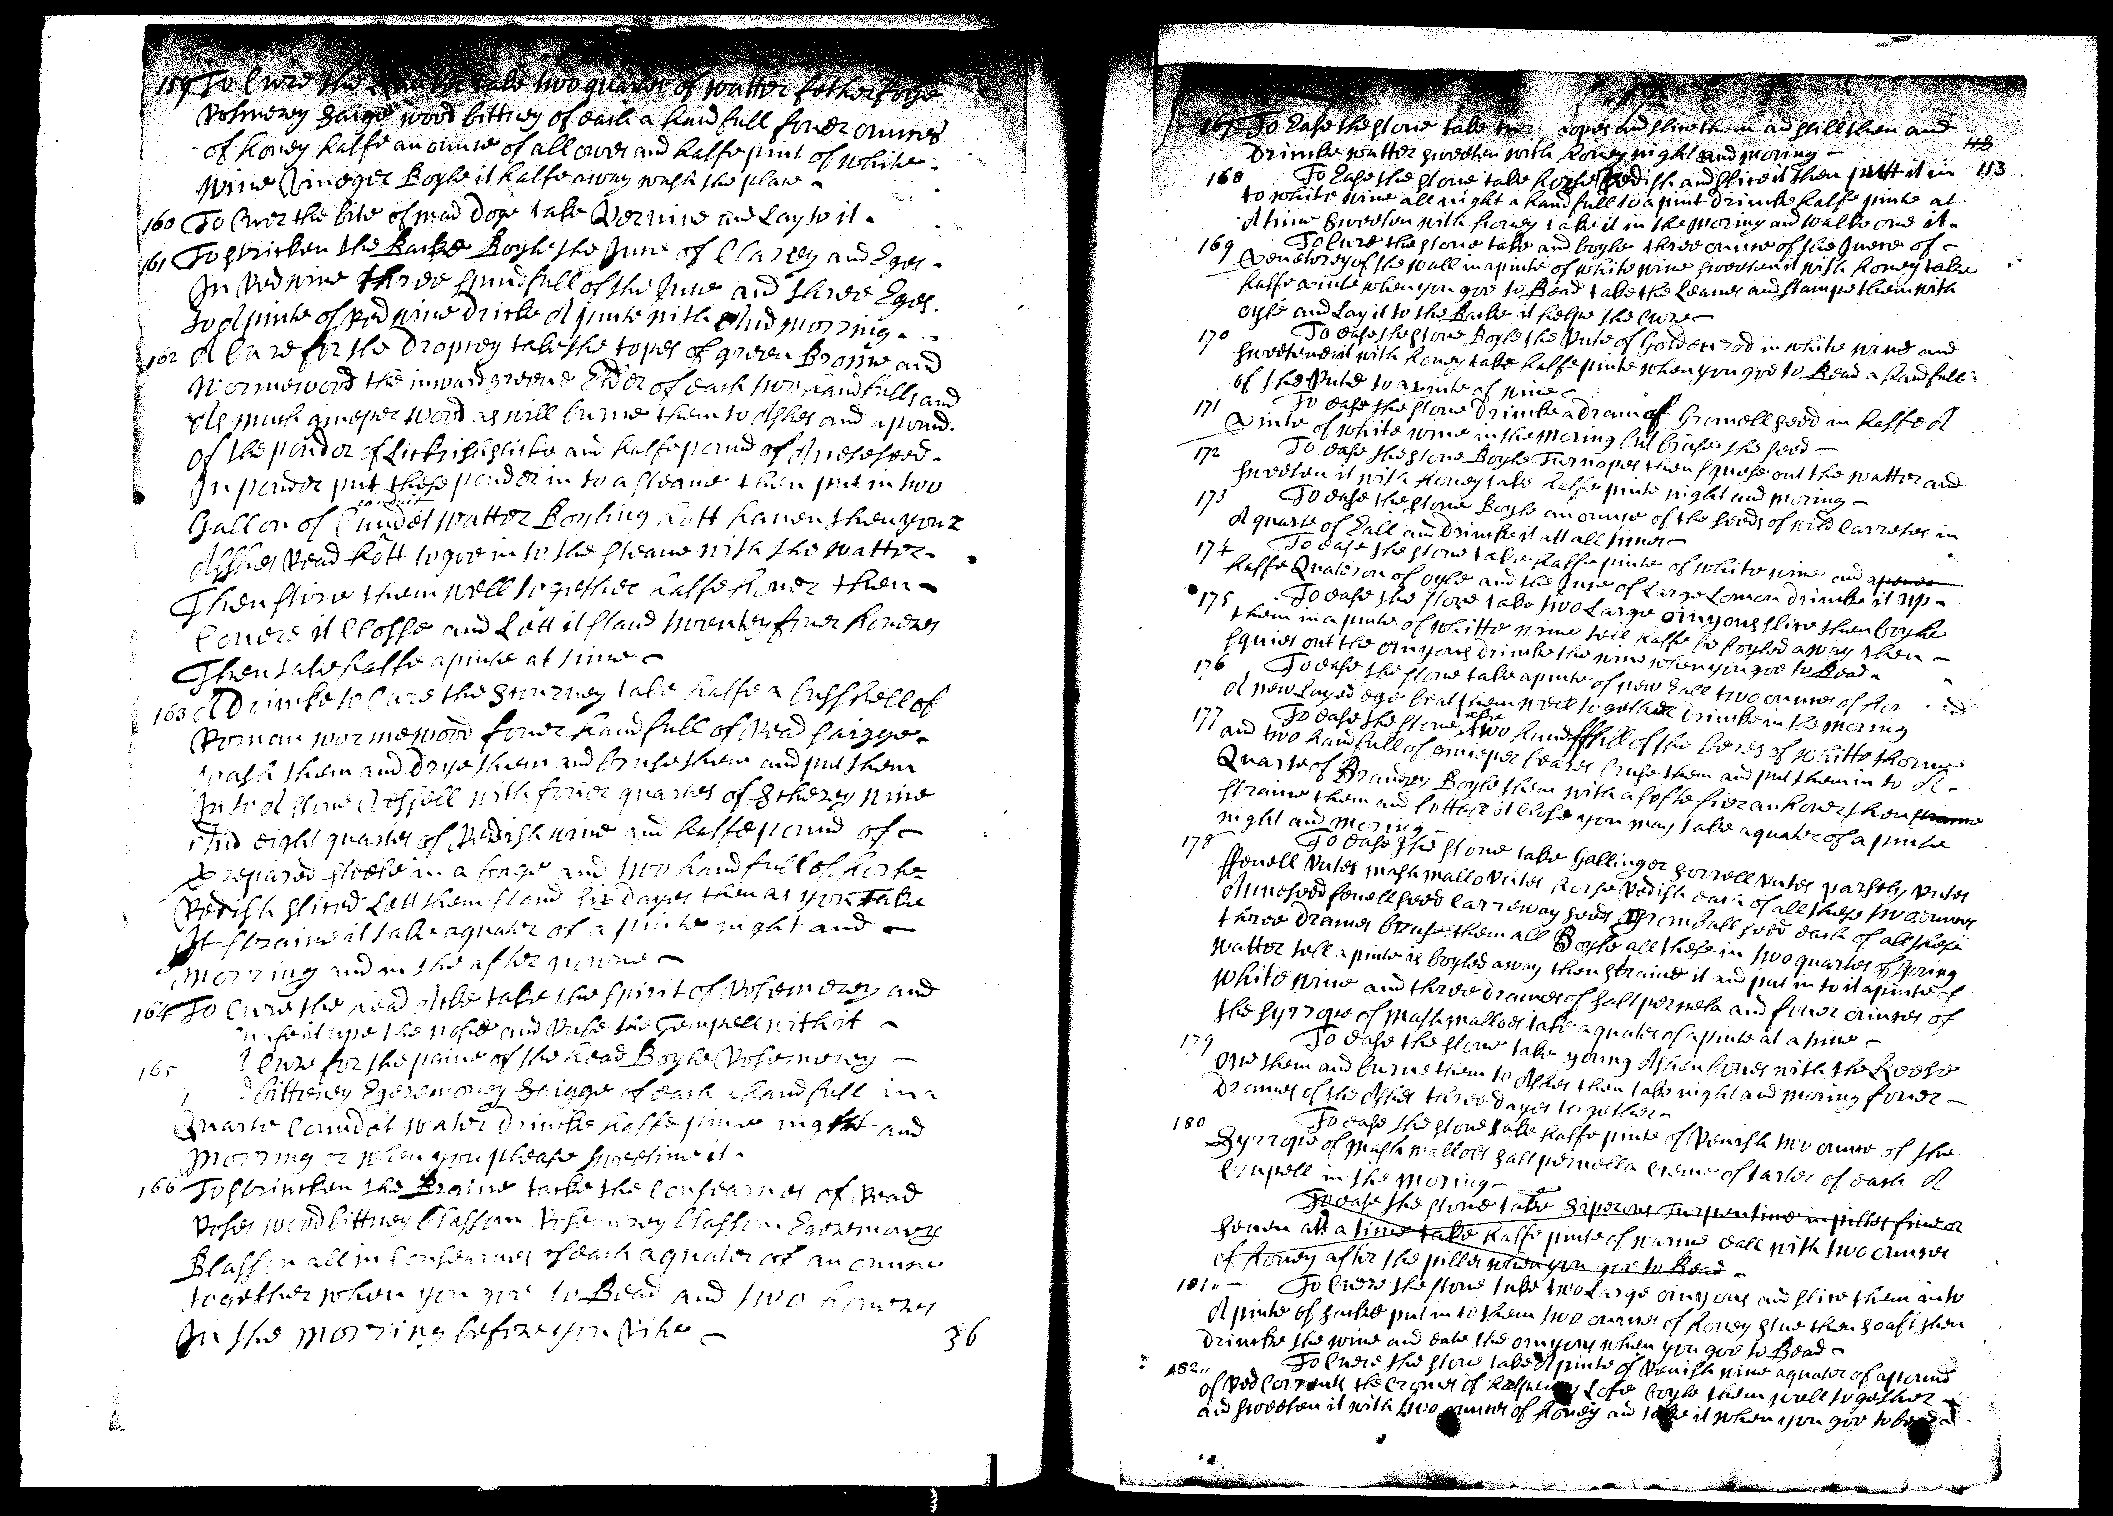 159 To Cure the take two quartes of watter fetherfoye
Rosmerey Saige wood bittney of each a handfull fouer ounces
of honey halfe an ounce of allowes and halfe pint of white
wine Vineger Boyle it halfe away wash the place
160 To Cuer the bite of mad Doge take Vervine and Lay to it
161 To strincken the Backe Boyle the Juce of Clarrey and Eges
In Red wine three spundfull of the Juce and three Eges
To A pinte of Red wine drinke A pinte nith And morring
162 A Cure for the Dropsey take the topes of green Broome and
Wormewood the inward greene Elder of each two handfulls and
As much Juneper Wood as will burne them to Ashes and a pound
of the pouder of Lickrish sticke and halfe pound of Aneseseed
In pouder put these pouder in to a steane then put in two
Gallon of Cundet watter Boyling hott haven then your
Asshes Read hott to goe in to the steane with the watter
Then stire them well together halfe hower then
Couere it Closse and Lett it stand twentey fiuer howeres
Then take halfe a pinte at time
163 A Drincke to Cure the Scurney take halfe a busshell of
Roman wormewood fouer handfull of Read saigge
wash them and drye them and bruse them and put them
In to A stone Vessell with fouer quartes of Scherey wine
And eight quartes of Renish wine and halfe pound of
Prepared steele in a bage and two handfull of horse
Redish sliced Lett them stand six dayes then as you Take
It straine it take a quater of a pinte night and
morring and in the after noune
164 To Cure the head Ake take the spirit of Rosemerey and
snufe it upe the nose and Rube the Tempell with it
165 A Cure for the paine of the head Boyle Rosemerey
bittney Egeremoney Saigge of each a handfull in a
Quarte Coundit water drincke halfe pinte night and
Morring or when you please sweetine it
166 To strincken the Braine tacke the Conserues of Read
Roses wood bittney blassom Rosemerey blassom Egeremoney
Blassom all in Conserues of each a quater of an ounce
together when you goe to Bead and two howeres
In the morring before you Rise
36
167 To Ease the stone take and slice them and still them and
Drinke watter sweeten with honey night and moring
113
168 To Ease the stone take horse Redish and slice it then putt it in
to white wine all night a handfull to a pint drinke halfe pinte at
A time sweeten with honey take it in the moring and walke one it
169 To Cure the stone take and boyle three ounce of the Juece of
Penetorey of the wall in a pinte of white wine sweeten it with honey take
halfe a pinte when you goe to Bead take the Leaues and stampe them with
oyle and Lay it to the Backe it helpes the Cure
170 To ease the stone Boyle the Rute of Golden rod in white wine and
sweetene it with honey take halfe pinte when you goe to Bead a handfull
of the Rute to a pinte of wine
171 To ease the stone drinke a dram of Gromell seed in halfe A
Pinte of white wine in the moring but bruse the seed
172 To ease the stone Boyle Turnopes then squese out the watter and
sweeten it with honey take halfe pinte night and moring
173 To ease the stone Boyle an ounce of the seeds of wild Carretes in
A quarte of Eall and drinke it att all times
174 To ease the stone take halfe pinte of white wine and
halfe Quateron of oyle and the Juce of Large Lemon drinke it up
175 To ease the stone take two Large oinyons slice them boyle
them in a pinte of whitte wine tell halfe be boyled away then
squies out the oinyons drinke the wine when you goe to Bead
176 To ease the stone take a pinte of new Eall two ounces of
A new Layed ege beat them well together drinke in the moring
177 To ease the stone take two handfull of the beres of whitte thorne
and two handfull of Junieper beares bruse them and put them in to A
Quarte of Brandey Boyle them with a softe fier an hower then
straine them and it close you may take a quater of a pinte
night and moring
178 To ease the stone take Gallinger sorrell Rutes parsely Rutes
ffenell Rutes mash mallo Rutes horse Redish each of all these two ounces
Aneseed fenell seed Carreway seed Gromball seed each of all these
three drames bruse them all Boyle all these in two quartes of spring
watter tell a pinte is boyled away then straine it and put in to it a pinte of
white wine and three drames of sall pernela and fouer ounces of
the syrrope of mash mallowes take a quater of a pinte at a time
179 To ease the stone take young Ashen with the
one them and burne them to Ashes then take night and moring fouer
Drames of the Ashes three dayes together
180 To ease the stone take halfe pinte of Renish two ounce of the
Syrrope of mash mallows sall pernella Creme of tarter of each A
Scrupell in the moring
To ease the stone take Turpentine in pilles fiue or
seuen att a time take halfe pinte of warme eall with two ounces
of honey after the pilles when you goe to Bead
181 To Cuere the stone take two Large oinyons and slice them into
A pinte of sacke put in to them two ounces of honey stue them soaft then
drincke the wine and eate the oinyons when you goe to Bead
182 To Cuere the stone take A pinte of Renish wine a quater of a pound
of Red Correnes the Cromes of halfpeney Lofe boyle them well together
and sweeten it with two ounces of honey and take it when you goe to bead